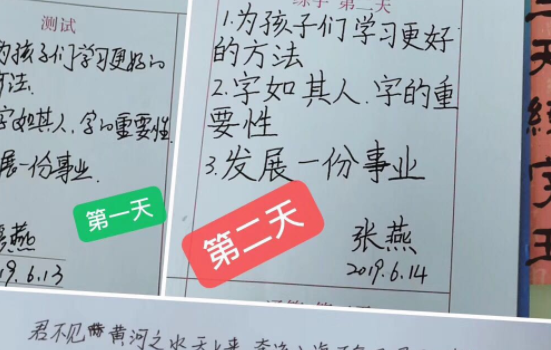 测试
为孩子们学习更好的
方法.
字如其人,字的重要性
发展一份事业.
燕
19.6.13
第一天
练字 第二天
1.为孩子们学习更好
的方法
2.字如其人.字的重
要性
3.发展一份事业
张燕
2019.6.14
第二天
三天练字
君不见黄河之水天上来